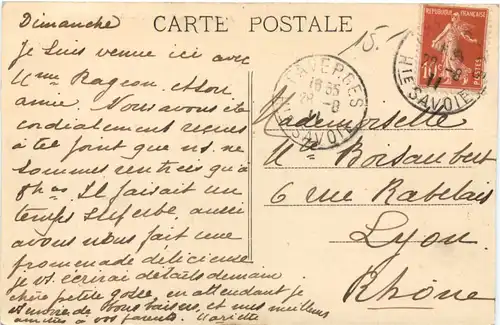 Dimanche
CARTE POSTALE
Je suis venue ici avec
Mme Rageon et son
amie. Nous avons été
cordialement reçues
à tel point que ns. ne
sommes rentrées qu'à
8 h. Il faisait un
temps superbe, aussi
avons nous fait une
promenade délicieuse
je vs. écrirai détails demain
chère petite gosse, en attendant je
vous baisers et mes meilleures
amitiés à vos parents. Mariette
15.
FAVERGES
18 35
28 -8
SAVOIE
RÉPUBLIQUE FRANÇAISE
POSTES
28 -8
HTE SAVOIE
Mademoiselle
Mlle Boisaubert
6 rue Rabelais
Lyon
Rhône